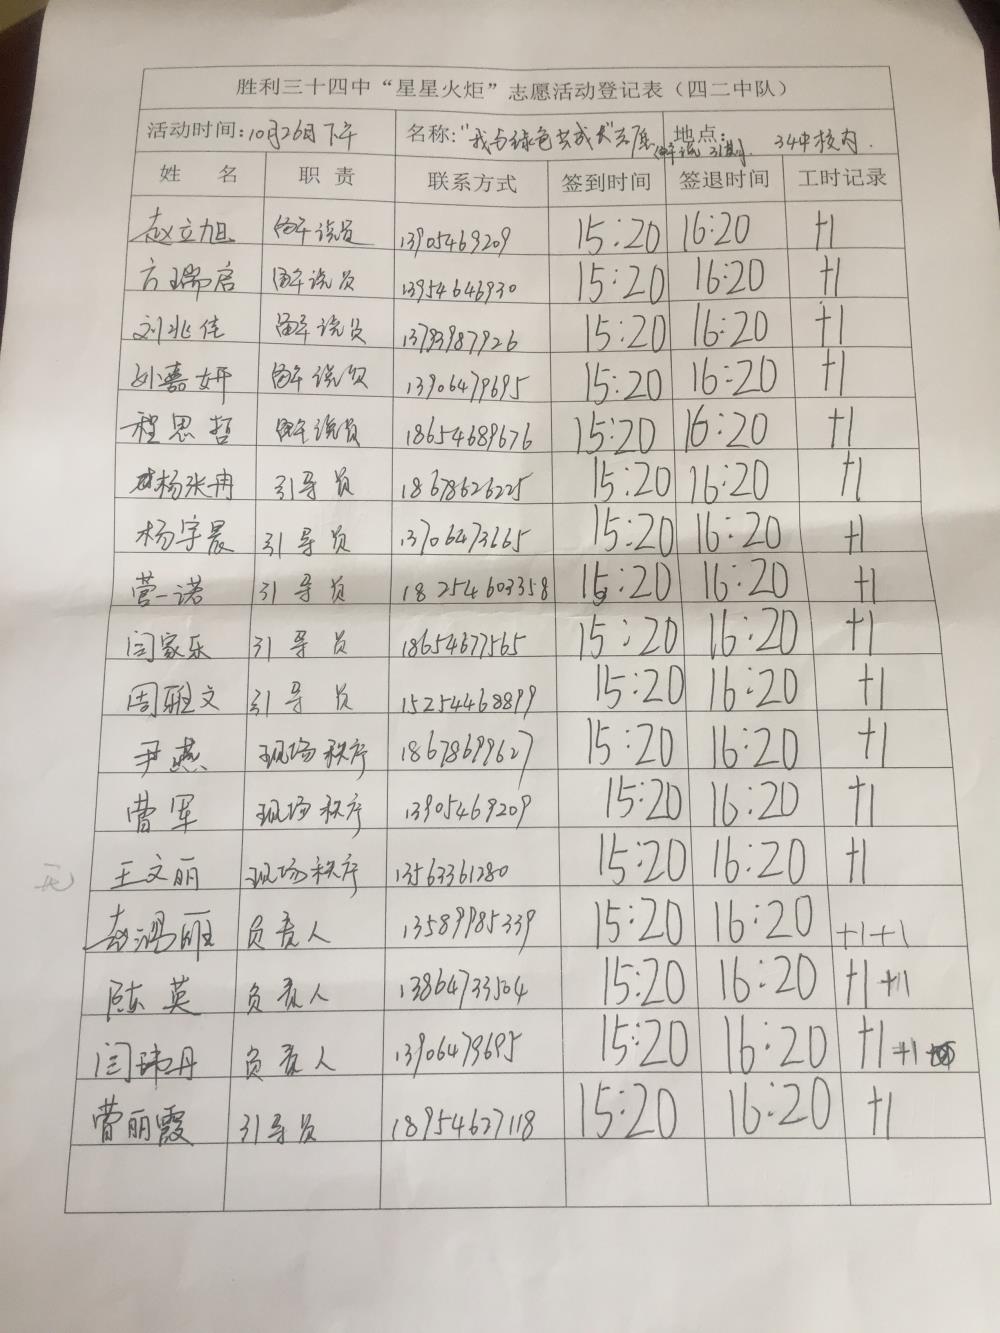 胜利三十四中“星星火炬”志愿活动登记表（四二中队）
活动时间:10月26日下午 名称:“我与绿色共成长”志愿 地点: 34中校内.
姓 名 职 责 联系方式 签到时间 签退时间 工时记录
赵立旭 解说员 13905469209 15:20 16:20 +1
方瑞启 解说员 13954646930 15:20 16:20 +1
刘兆佳 解说员 13793987926 15:20 16:20 +1
孙嘉妍 解说员 13906479695 15:20 16:20 +1
程思哲 解说员 18654689676 15:20 16:20 +1
杨张冉 引导员 18678626225 15:20 16:20 +1
杨宇晨 引导员 13706473665 15:20 16:20 +1
菅一诺 引导员 18254603358 15:20 16:20 +1
闫家乐 引导员 18654677565 15:20 16:20 +1
周雅文 引导员 15254468899 15:20 16:20 +1
尹燕 现场秩序 18678699627 15:20 16:20 +1
曹军 现场秩序 13905469209 15:20 16:20 +1
王文丽 现场秩序 13563361280 15:20 16:20 +1
赵鸿雁 负责人 13589985339 15:20 16:20 +1+1
陈英 负责人 13864733504 15:20 16:20 +1 +1
闫琳丹 负责人 13906479695 15:20 16:20 +1 +1
曹丽霞 引导员 18954627118 15:20 16:20 +1